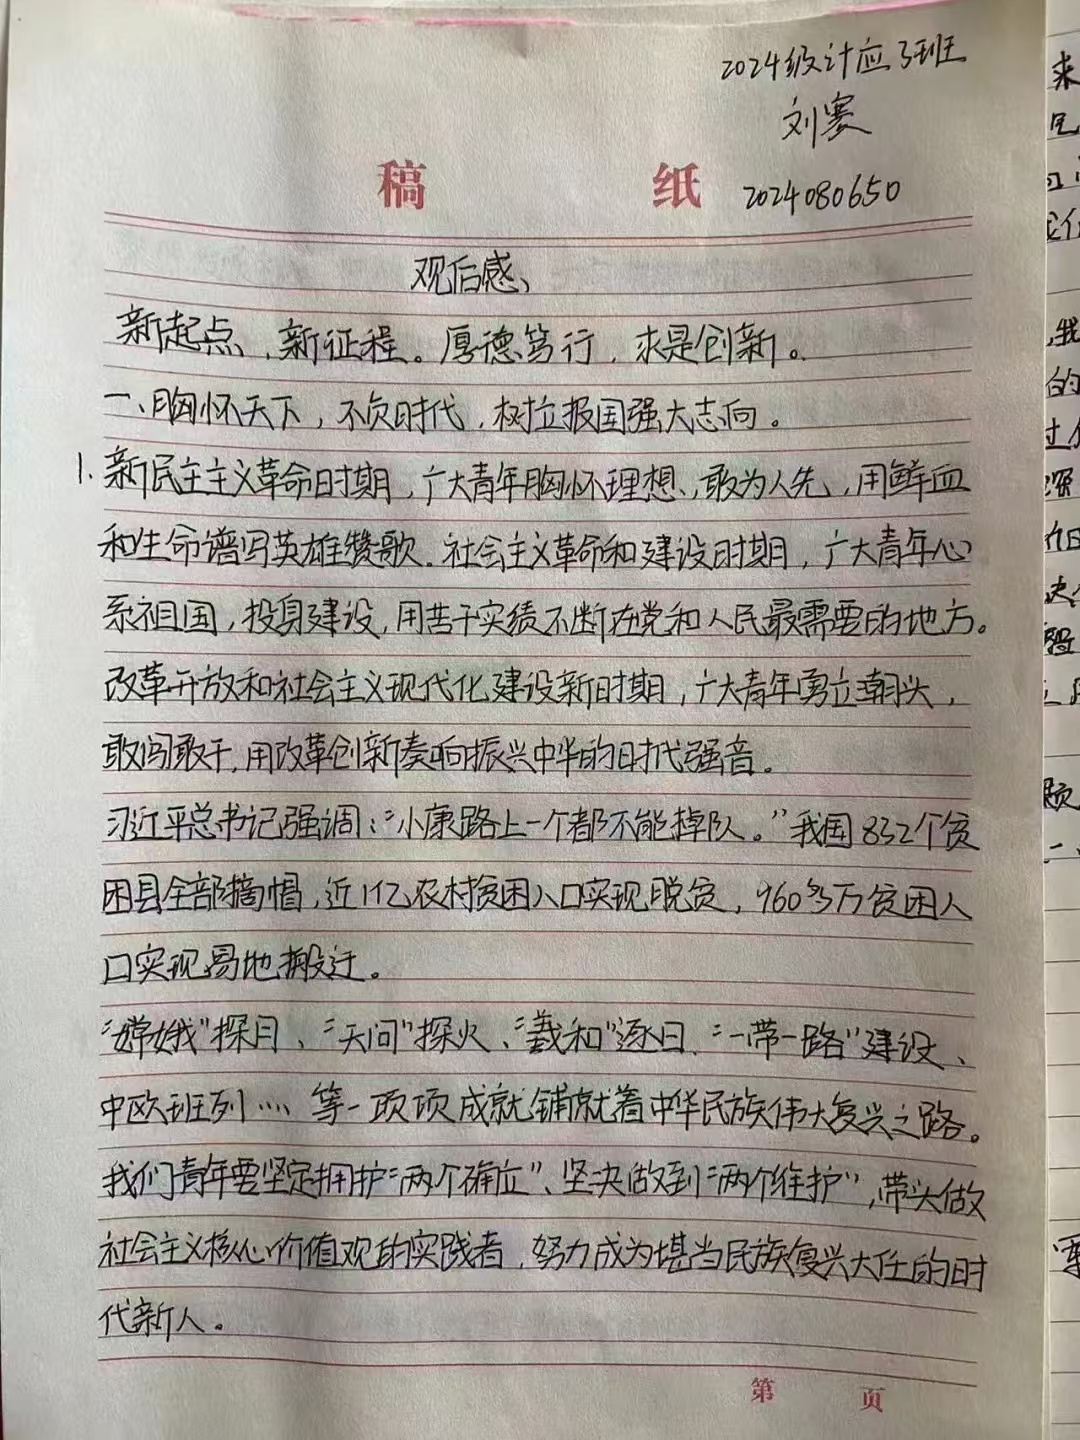 2024级计应3班
刘赛
稿 纸
2024080650
观后感、
新起点、新征程。厚德笃行，求是创新。
一、胸怀天下，不负时代，树立报国强大志向。
1. 新民主主义革命时期，广大青年胸怀理想、敢为人先，用鲜血
和生命谱写英雄赞歌。社会主义革命和建设时期，广大青年心
系祖国，投身建设，用苦干实绩不断在党和人民最需要的地方。
改革开放和社会主义现代化建设新时期，广大青年勇立潮头，
敢闯敢干，用改革创新奏响振兴中华的时代强音。
习近平总书记强调：“小康路上一个都不能掉队。”我国832个贫
困县全部摘帽，近1亿农村贫困人口实现脱贫，960多万贫困人
口实现易地搬迁。
“嫦娥”探月、“天问”探火、“羲和”逐日、“一带一路”建设、
中欧班列……等一项项成就铺就着中华民族伟大复兴之路。
我们青年要坚定拥护“两个确应”、坚决做到“两个维护”，带头做
社会主义核心价值观的实践者，努力成为堪当民族复兴大任的时
代新人。
第 页